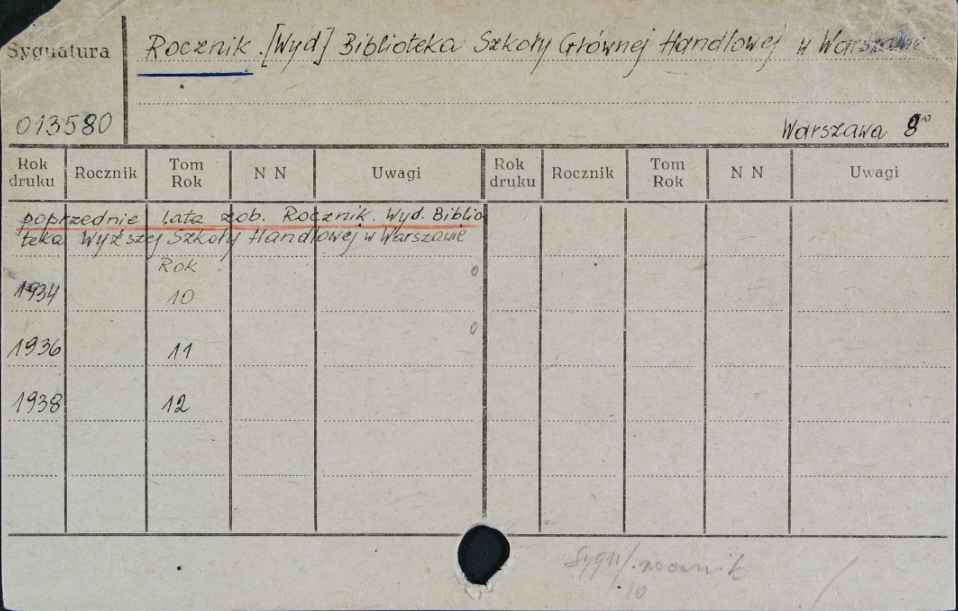 Sygnatura
Rocznik .[Wyd] Biblioteka Szkoły Głównej Handlowej w Warszawie
013580
Warszawa 8⁰
Rok druku Rocznik Tom Rok N N Uwagi Rok druku Rocznik Tom Rok N N Uwagi
poprzednie lata zob. Rocznik. Wyd. Biblio
teka Wyższej Szkoły Handlowej w Warszawie
Rok
1934 10
1936 11
1938 12
10